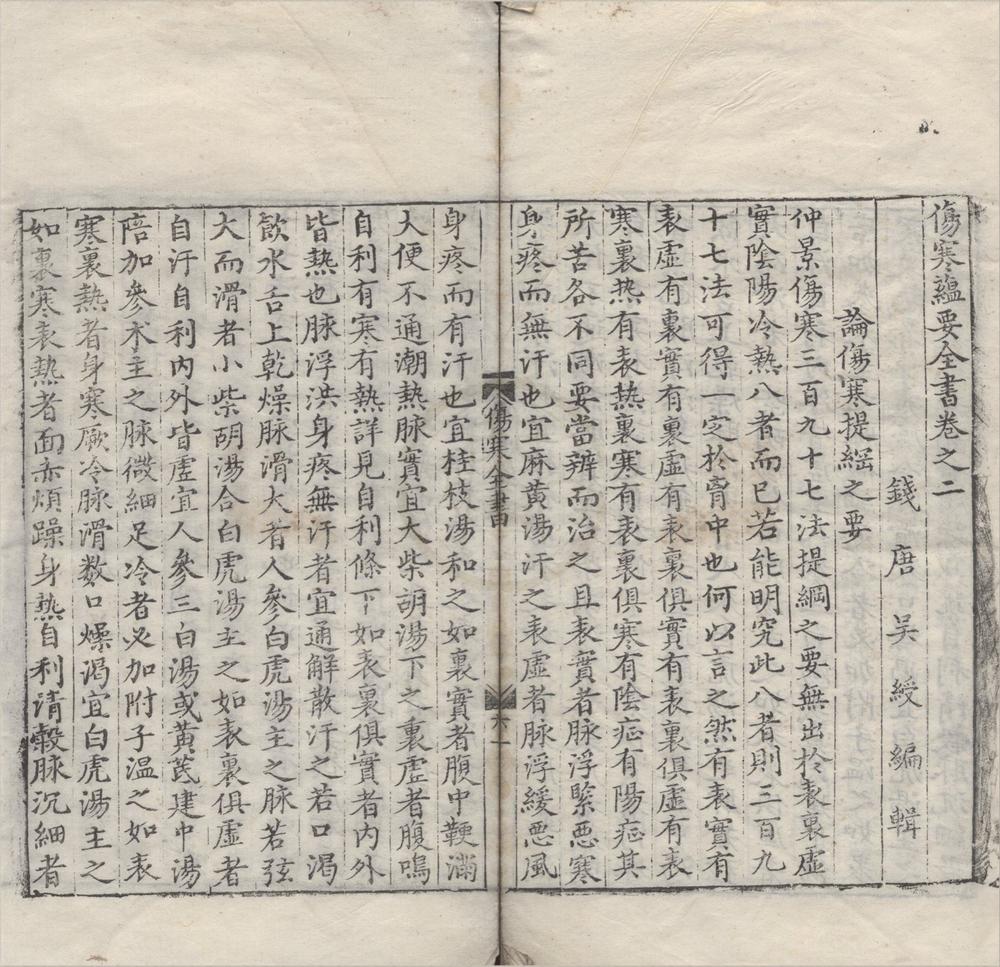 傷寒蘊要全書卷之二
錢唐吳綬編輯
論傷寒提綱之要
仲景傷寒三百九十七法提綱之要無出於表裏虛
實陰陽冷熱八者而已若能明究此八者則三百九
十七法可得一定於胷中也何以言之然有表實有
表虛有裏實有裏虛有表裏俱實有表裏俱虛有表
寒裏热有表熱裏寒有表裏俱寒有陰症有陽症其
所苦各不同要當辨而治之且表實者脉浮緊惡寒
身疼而無汗也宜麻黄湯汗之表虛者脉浮緩悪風
傷寒全書
六
一
身疼而有汗也宜桂枝湯和之如裏實者腹中鞕滿
大便不通潮熱脉實宜大柴胡湯下之裏虛者腹鳴
自利有寒有熱詳見自利條下如表裏俱實者内外
皆熱也脉浮洪身疼無汗者宜通解散汗之若口渴
飲水舌上乾燥脉滑大者人參白虎湯主之脉若弦
大而滑者小柴胡湯合白虎湯主之如表裏俱虛者
自汗自利内外皆虛宜人參三白湯或黃芪建中湯
陪加參术主之脉微細足冷者必加附子温之如表
寒裏熱者身寒厥冷脉滑数口燥渴宜白虎湯主之
如裏寒表熱者面赤煩躁身熱自利清穀脉沉細者